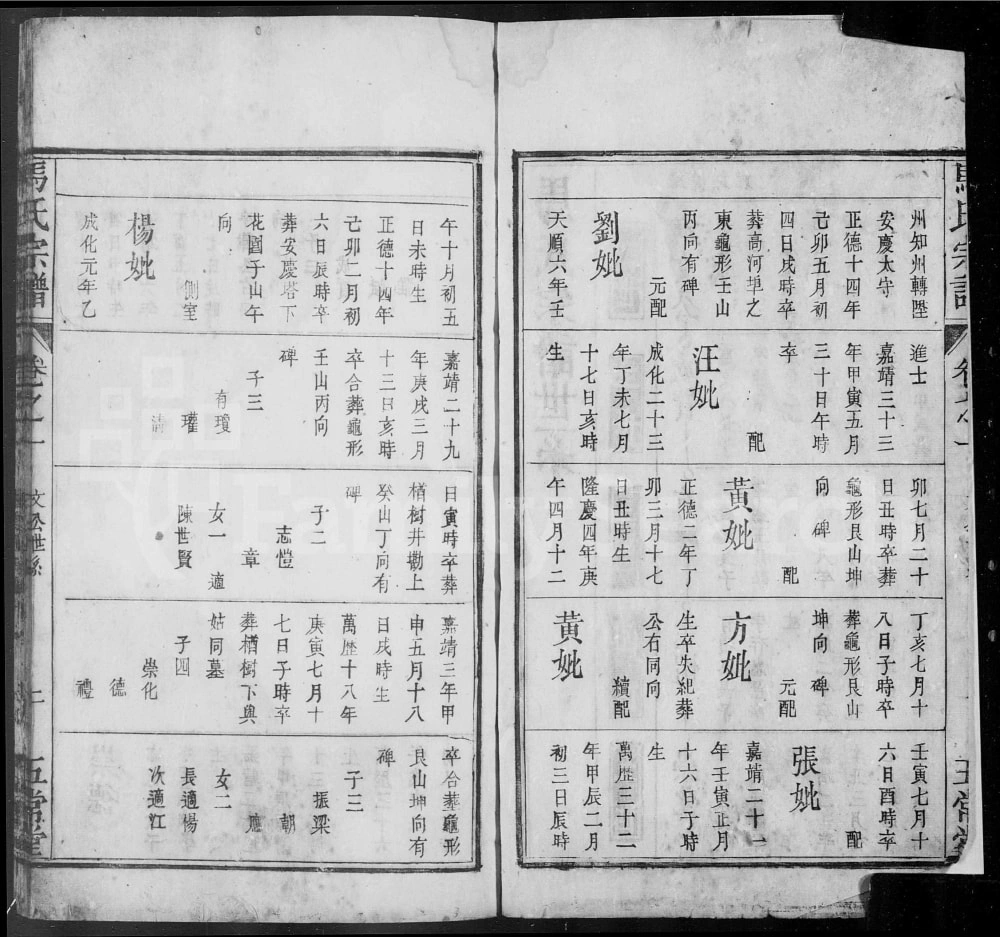 州知州轉陞
安慶太守
正德十四年
己卯五月初
四日戌時卒
葬高河埠之
東龜形壬山
丙向有碑
元配
劉妣
天順六年壬
進士
嘉靖三十三
年甲寅五月
三十日午時
卒
配
汪妣
成化二十三
年丁未七月
十七日亥時
生
卯七月二十
日丑時卒葬
龜形艮山坤
向碑
配
黃妣
正德二年丁
卯三月十七
日丑時生
隆慶四年庚
午四月十二
丁亥七月十
八日子時卒
葬龜形艮山
坤向碑
元配
方妣
生卒失紀葬
公右同向
續配
黃妣
壬寅七月十
六日酉時卒
配
張妣
嘉靖二十一
年壬寅正月
十六日子時
生
萬歷三十二
年甲辰二月
初三日辰時
午十月初五
日未時生
正德十四年
己卯二月初
六日辰時卒
葬安慶塔下
花園子山午
向
側室
楊妣
成化元年乙
嘉靖二十九
年庚戌三月
十三日亥時
卒合葬龜形
壬山丙向
碑
子三
有瓊
瓘
清
日寅時卒葬
楢樹井墈上
癸山丁向有
碑
子二
志愷
章
女一適
陳世賢
嘉靖三年甲
申五月十八
日戌時生
萬歷十八年
庚寅七月十
七日子時卒
葬楢樹下與
姑同墓
子四
崇化
德
禮
卒合葬龜形
艮山坤向有
碑
子三
振梁
朝
應
女二
長適楊
次適江
馬氏宗譜
卷之一
五常堂